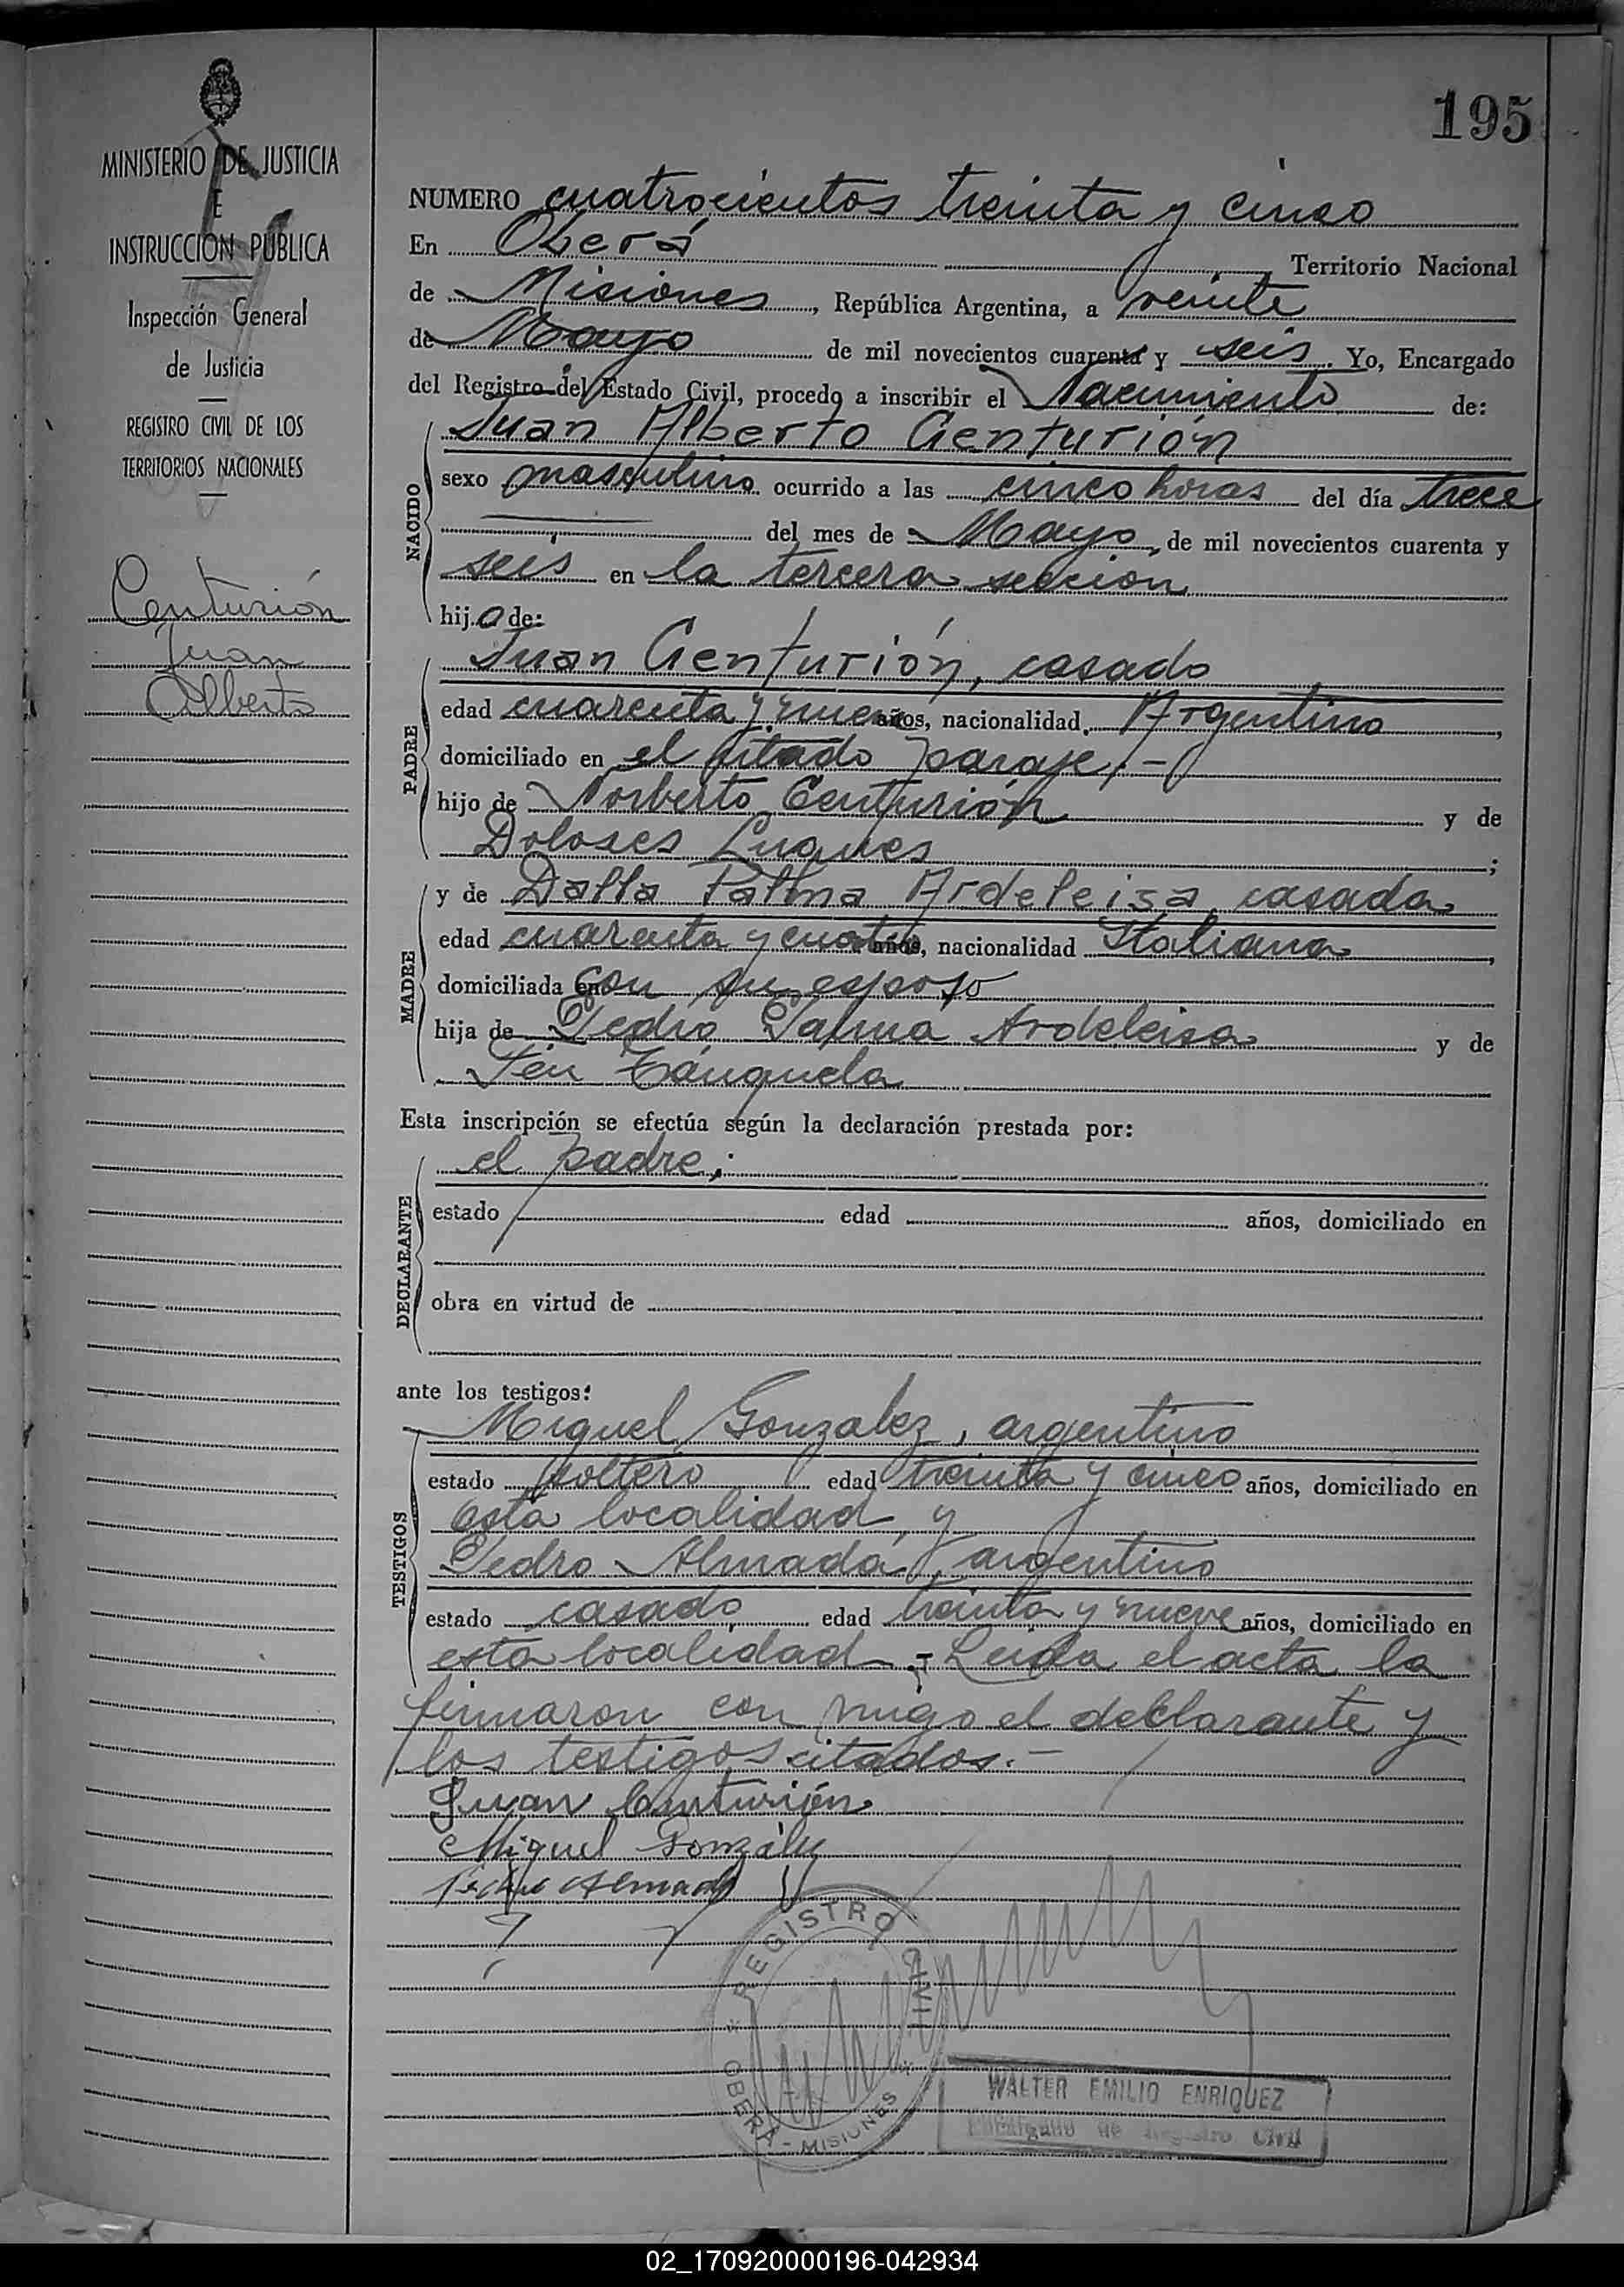 195
MINISTERIO DE JUSTICIA
E
INSTRUCCION PUBLICA
Inspección General
de Justicia
REGISTRO CIVIL DE LOS
TERRITORIOS NACIONALES
Centurión
Juan
Alberto
NUMERO cuatrocientos treinta y cinco
En Oberá Territorio Nacional
de Misiones, República Argentina, a veinte
de Mayo de mil novecientos cuarenta y seis. Yo, Encargado
del Registro del Estado Civil, procedo a inscribir el Nacimiento de:
NACIDO
Juan Alberto Centurión
sexo masculino ocurrido a las cinco horas del día trece
del mes de Mayo, de mil novecientos cuarenta y
seis en la tercera seccion
hijo de:
PADRE
Juan Centurión, casado
edad cuarenta y nueve años, nacionalidad Argentino,
domiciliado en el citado paraje.-
hijo de Norberto Centurión y de
Dolores Luques;
MADRE
y de Dalla Palma Ardeleisa, casada
edad cuarenta y cuatro años, nacionalidad Italiana,
domiciliada en con su esposo
hija de Pedro Palma Ardeleisa y de
Tánguela
Esta inscripción se efectúa según la declaración prestada por:
DECLARANTE
el padre;
estado edad años, domiciliado en
obra en virtud de
ante los testigos:
TESTIGOS
Miguel Gonzalez, argentino
estado soltero edad treinta y cinco años, domiciliado en
esta localidad, y
Pedro Almada, argentino
estado casado edad treinta y nueve años, domiciliado en
esta localidad.- Leida el acta la
firmaron con migo el declarante y
los testigos citados.-
Juan Centurión
Miguel González
Pedro Almada
REGISTRO CIVIL
OBERA - MISIONES
WALTER EMILIO ENRIQUEZ
Encargado de Registro Civil
02_170920000196-042934